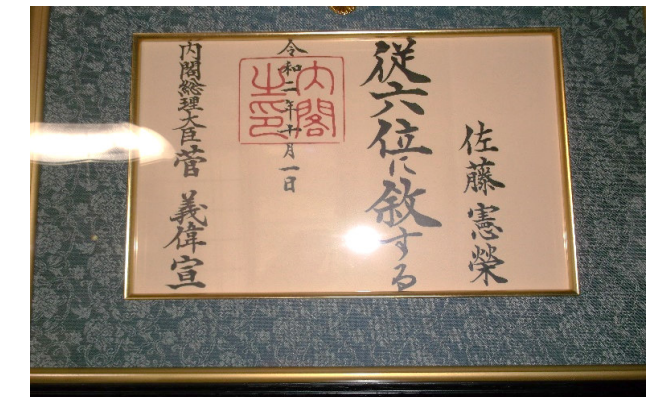 佐藤憲榮
従六位に叙する
令和二年十月一日
内閣之印
内閣総理大臣菅義偉宣